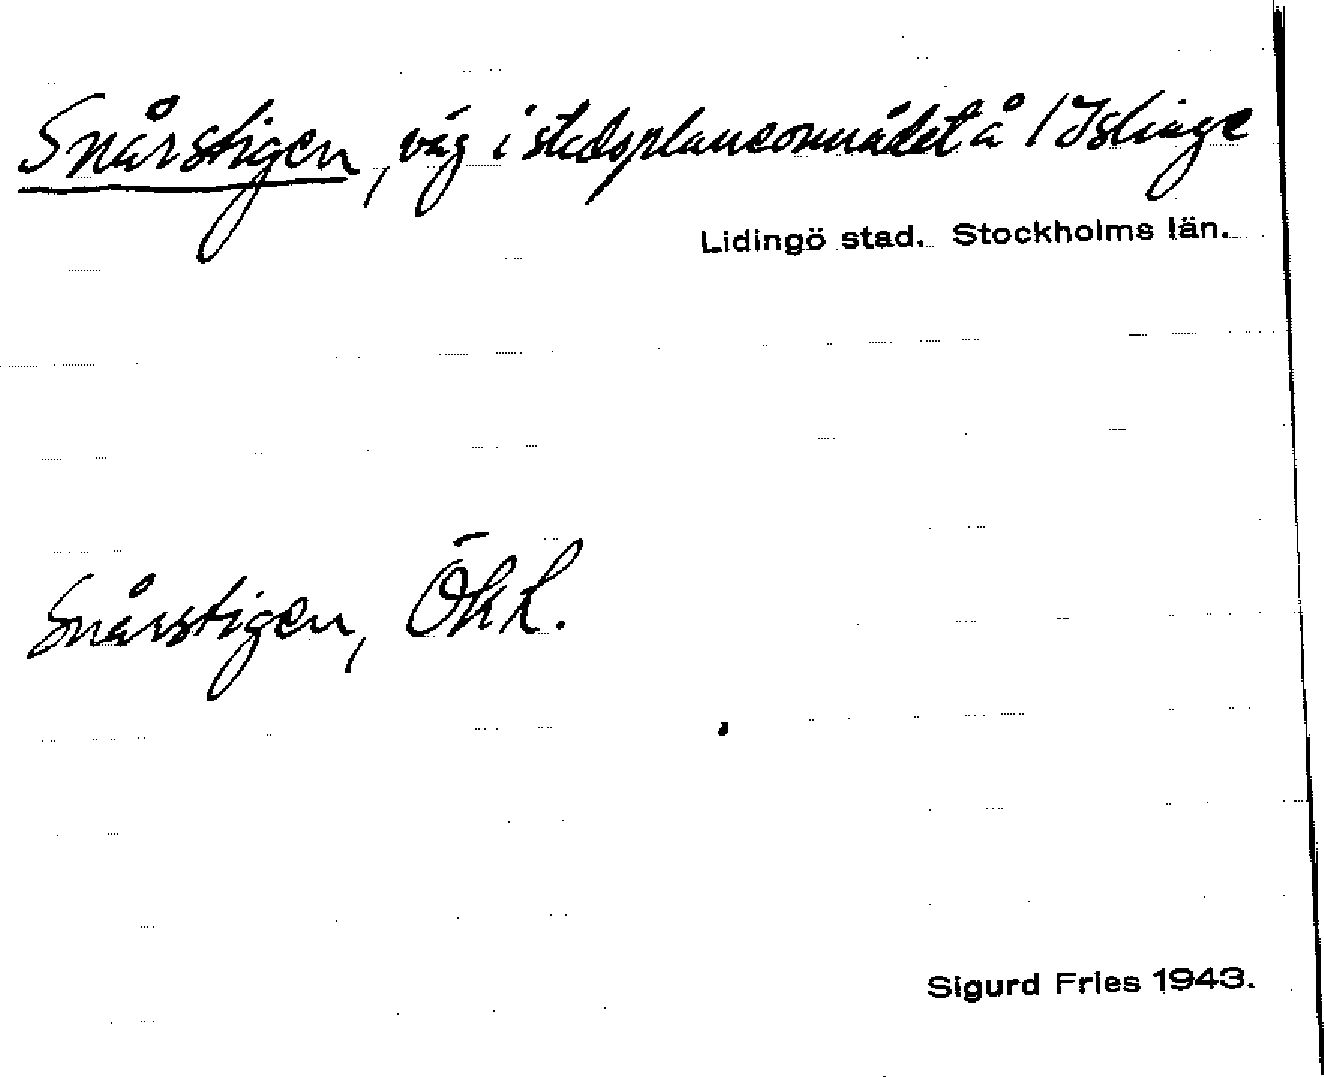 Snårstigen, väg i stadsplaneområdet å /Islinge
Lidingö stad. Stockholms län.
Snårstigen, Ökk.
Sigurd Fries 1943.